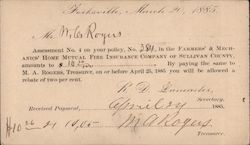 March 2, 1885.
Mr. Wiles Rogers
Assessment No. 4 on your policy, No. 384, in the Farmers' & Mech-
anics' Home Mutual Fire Insurance Company of Sullivan County,
amounts to $ By paying the same to
M. A. Rogers, Treasurer, on or before April 25, 1885 you will be allowed a
rebate of two per cent.
Secretary.
Received Payment, April 1885.
M A Rogers.
Treasurer.